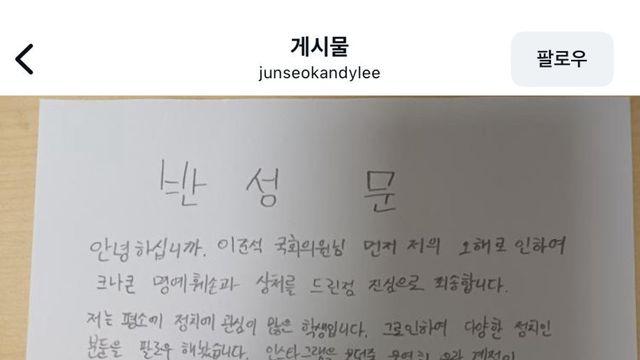 게시물
junseokandylee
팔로우
반 성 문
안녕하십니까. 이준석 국회의원님 먼저 저의 오해로 인하여
크나큰 명예훼손과 상처를 드린점 진심으로 죄송합니다.
저는 평소에 정치에 관심이 많은 학생입니다. 그로인하여 다양한 정치인
분들을 팔로우 해놨습니다. 인스타그램은